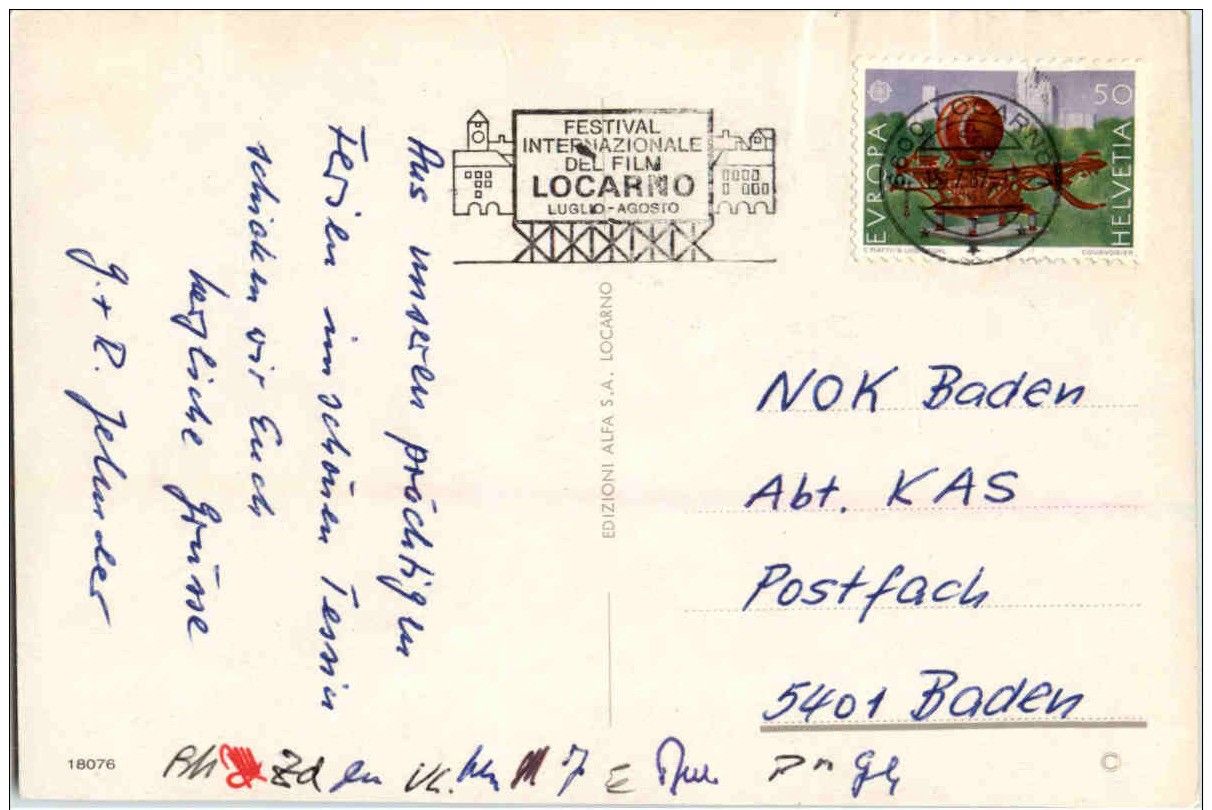 FESTIVAL
INTERNAZIONALE
DEL FILM
LOCARNO
LUGLIO-AGOSTO
6600 LOCARNO 1
50
EVROPA
HELVETIA
COURVOISIER
Aus unseren prächtigen
Ferien im schönen Tessin
schicken wir Euch
herzliche Grüsse
G. + R. Zehnder
EDIZIONI ALFA S.A. LOCARNO
NOK Baden
Abt. KAS
Postfach
5401 Baden
18076
Zd
©